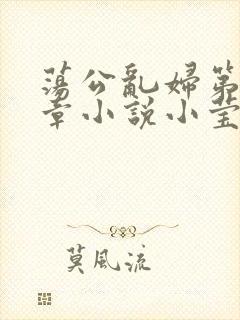 蕩公亂婦第
章小說小莹
莫風流